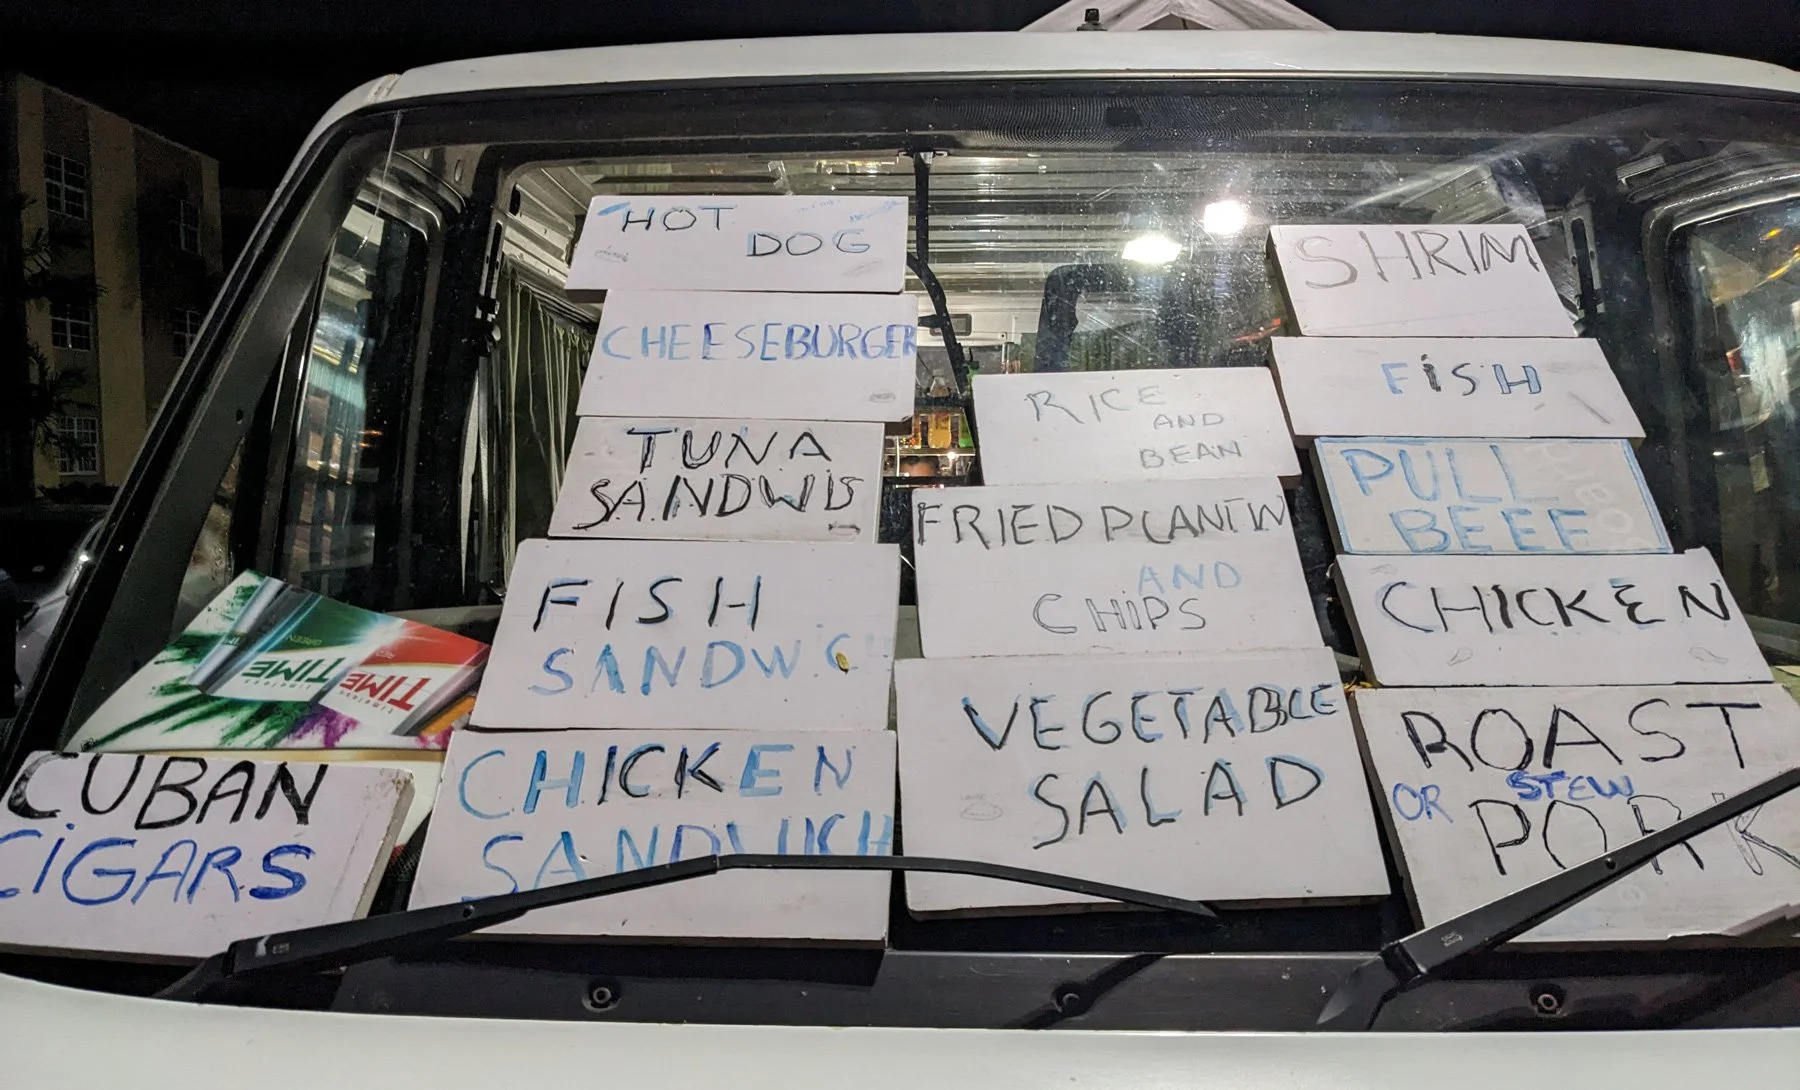 HOT
DOG
CHEESEBURGER
TUNA
SANDWIS
FISH
SANDWC
CHICKEN
SANDWICH
CUBAN
CIGARS
TIME
GREEN
TIME
RICE
AND
BEAN
FRIED PLANTIN
AND
CHIPS
VEGETABLE
SALAD
SHRIM
FISH
PULL
BEEF
CHICKEN
ROAST
OR STEW
PORK